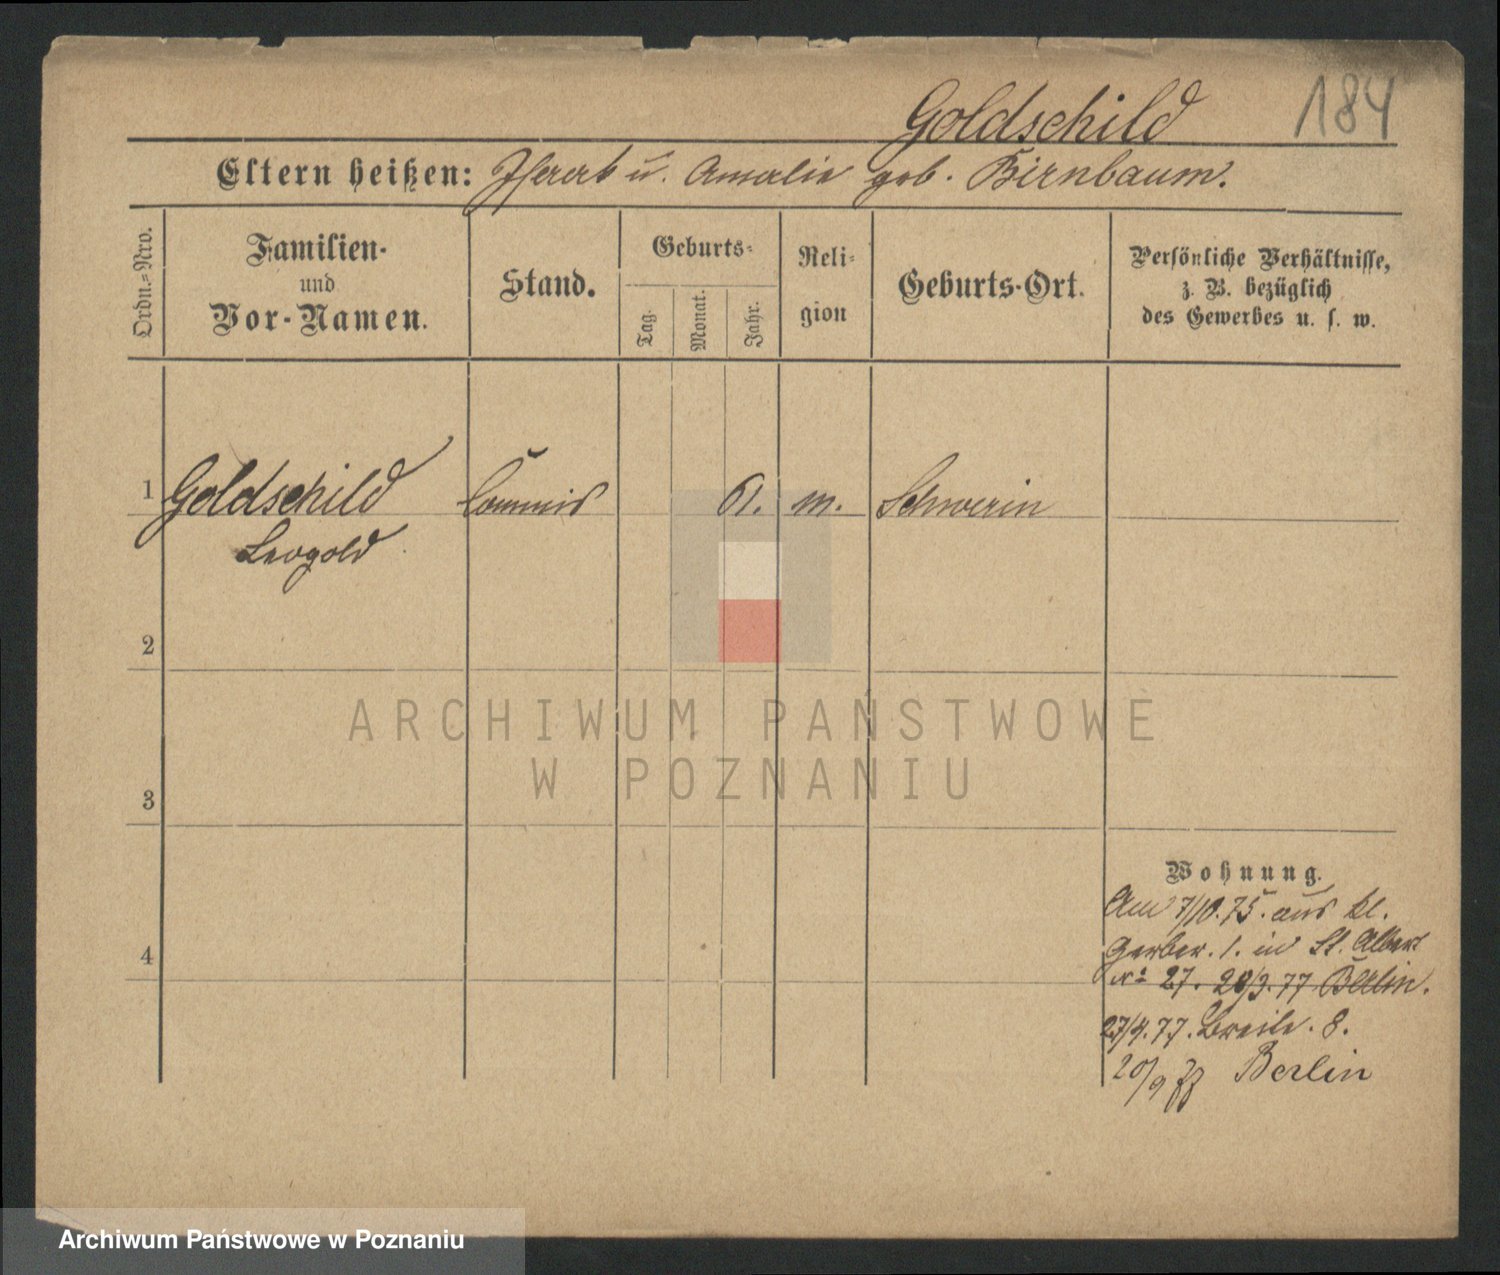 184
Goldschild
Eltern heißen: Isaak u. Amalie geb. Birnbaum.
Ordn.-Nro.
Familien-
und
Vor-Namen.
Stand.
Geburts-
Tag.
Monat.
Jahr.
Reli-
gion
Geburts-Ort.
Persönliche Verhältnisse,
z. B. bezüglich
des Gewerbes u. s. w.
1 Goldschild Commis m. Schwerin
Leopold
2
ARCHIWUM PAŃSTWOWE
W POZNANIU
3
Wohnung.
Am 7/10.75. aus kl.
4
Gerber. 1. in St. Adalbert
No 27. 20/3.77 Berlin.
27/4.77. Breite. 8.
20/9 Berlin
Archiwum Państwowe w Poznaniu